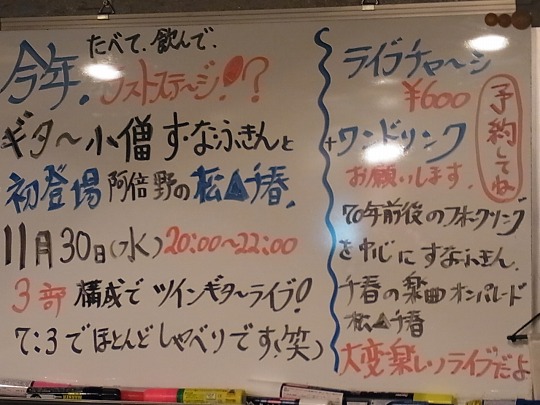 たべて、飲んで、
今年。ラストステージ!?
ギター小僧 す・なふきんと
初登場 阿倍野の松▲千春。
11月30日(水) 20:00〜22:00
3部 構成で ツインギターライブ!
7:3でほとんどしゃべりです!(笑)
ライブチャージ
¥600
+ワンドリンク
お願いします。
予約してね
70年前後のフォークソング
を中心に すなふきん、
千春の楽曲オンパレード
松▲千春
大変楽しいライブだよ